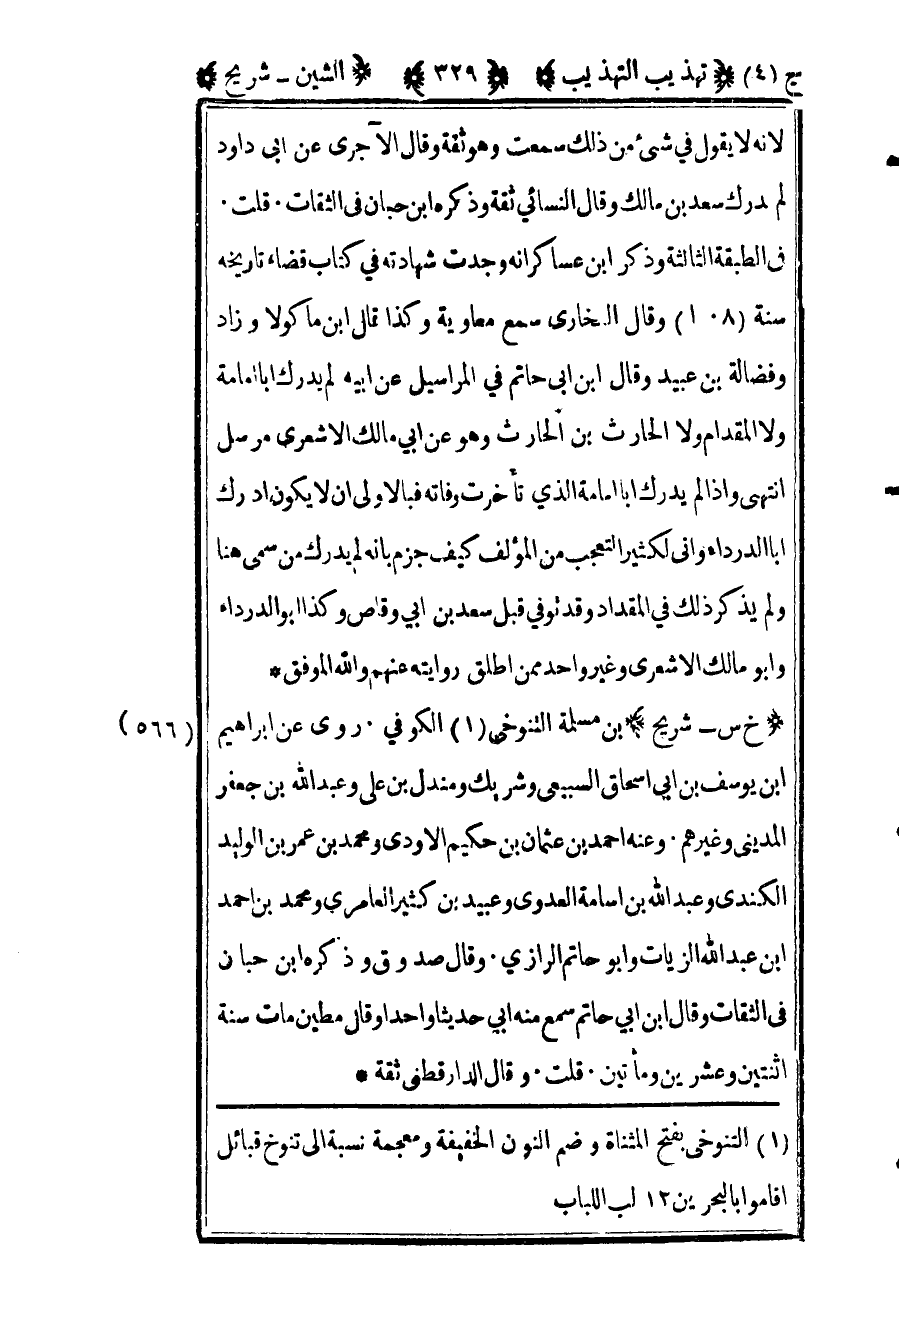 ج (٤) ﴿ تهذيب التهذيب ﴾ ﴿ ٣٢٩ ﴾ ﴿ الشين - شريح ﴾
لانه لا يقول في شئ من ذلك سمعت وهو ثقة وقال الآجرى عن ابى داود
لم يدرك سعد بن مالك وقال النسائي ثقة وذكره ابن حبان فى الثقات · قلت ·
فى الطبقة الثالثة وذكر ابن عساكر انه وجدت شهادته في كتاب قضاء تاريخه
سنة (١٠٨) وقال البخارى سمع معاوية وكذا قال ابن ماكولا وزاد
وفضالة بن عبيد وقال ابن ابى حاتم في المراسيل عن ابيه لم يدرك ابا امامة
ولا المقدام ولا الحارث بن الحارث وهو عن ابي مالك الاشعرى مرسل
انتهى واذا لم يدرك ابا امامة الذي تأخرت وفاته فبالاولى ان لا يكون ادرك
ابا الدرداء وانى لكثير التعجب من المؤلف كيف جزم بانه لم يدرك من سمى هنا
ولم يذكر ذلك في المقداد وقد توفي قبل سعد بن ابي وقاص وكذا ابو الدرداء
وابو مالك الاشعرى وغير واحد ممن اطلق روايته عنهم والله الموفق *
﴿ خ س - شريح ﴾ بن مسلمة التنوخى (١) الكوفي · روى عن ابراهيم (٥٦٦)
ابن يوسف بن ابي اسحاق السبيعى وشريك ومندل بن على وعبد الله بن جعفر
المدينى وغيرهم · وعنه احمد بن عثمان بن حكيم الاودى ومحمد بن عمر بن الوليد
الكندى وعبد الله بن اسامة العدوى وعبيد بن كثير العامري ومحمد بن احمد
ابن عبد الله الزيات وابو حاتم الرازي · وقال صدوق وذكره ابن حبان
فى الثقات وقال ابن ابي حاتم سمع منه ابي حديثا واحدا وقال مطين مات سنة
اثنتين وعشرين ومأتين · قلت · وقال الدارقطنى ثقة *
(١) التنوخى بفتح المثناة وضم النون الخفيفة ومعجمة نسبة الى تنوخ قبائل
اقاموا بالبحرين ١٢ لب اللباب